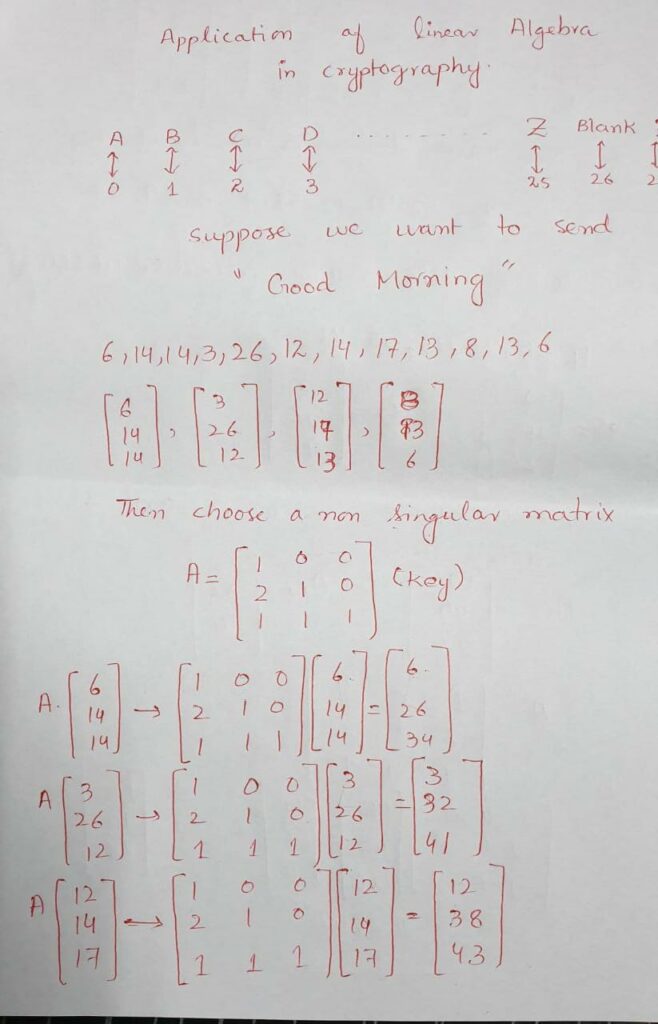 Application of linear Algebra
in cryptography.
A B C D ........ Z Blank
↕ ↕ ↕ ↕ ↕ ↕
0 1 2 3 25 26
suppose we want to send
"Good Morning"
6, 14, 14, 3, 26, 12, 14, 17, 13, 8, 13, 6
[6 14 14], [3 26 12], [12 17 13], [8 13 6]
Then choose a non singular matrix
A = [1 0 0; 2 1 0; 1 1 1] (key)
A. [6 14 14] → [1 0 0; 2 1 0; 1 1 1] [6 14 14] = [6 26 34]
A [3 26 12] → [1 0 0; 2 1 0; 1 1 1] [3 26 12] = [3 32 41]
A [12 14 17] → [1 0 0; 2 1 0; 1 1 1] [12 14 17] = [12 38 43]